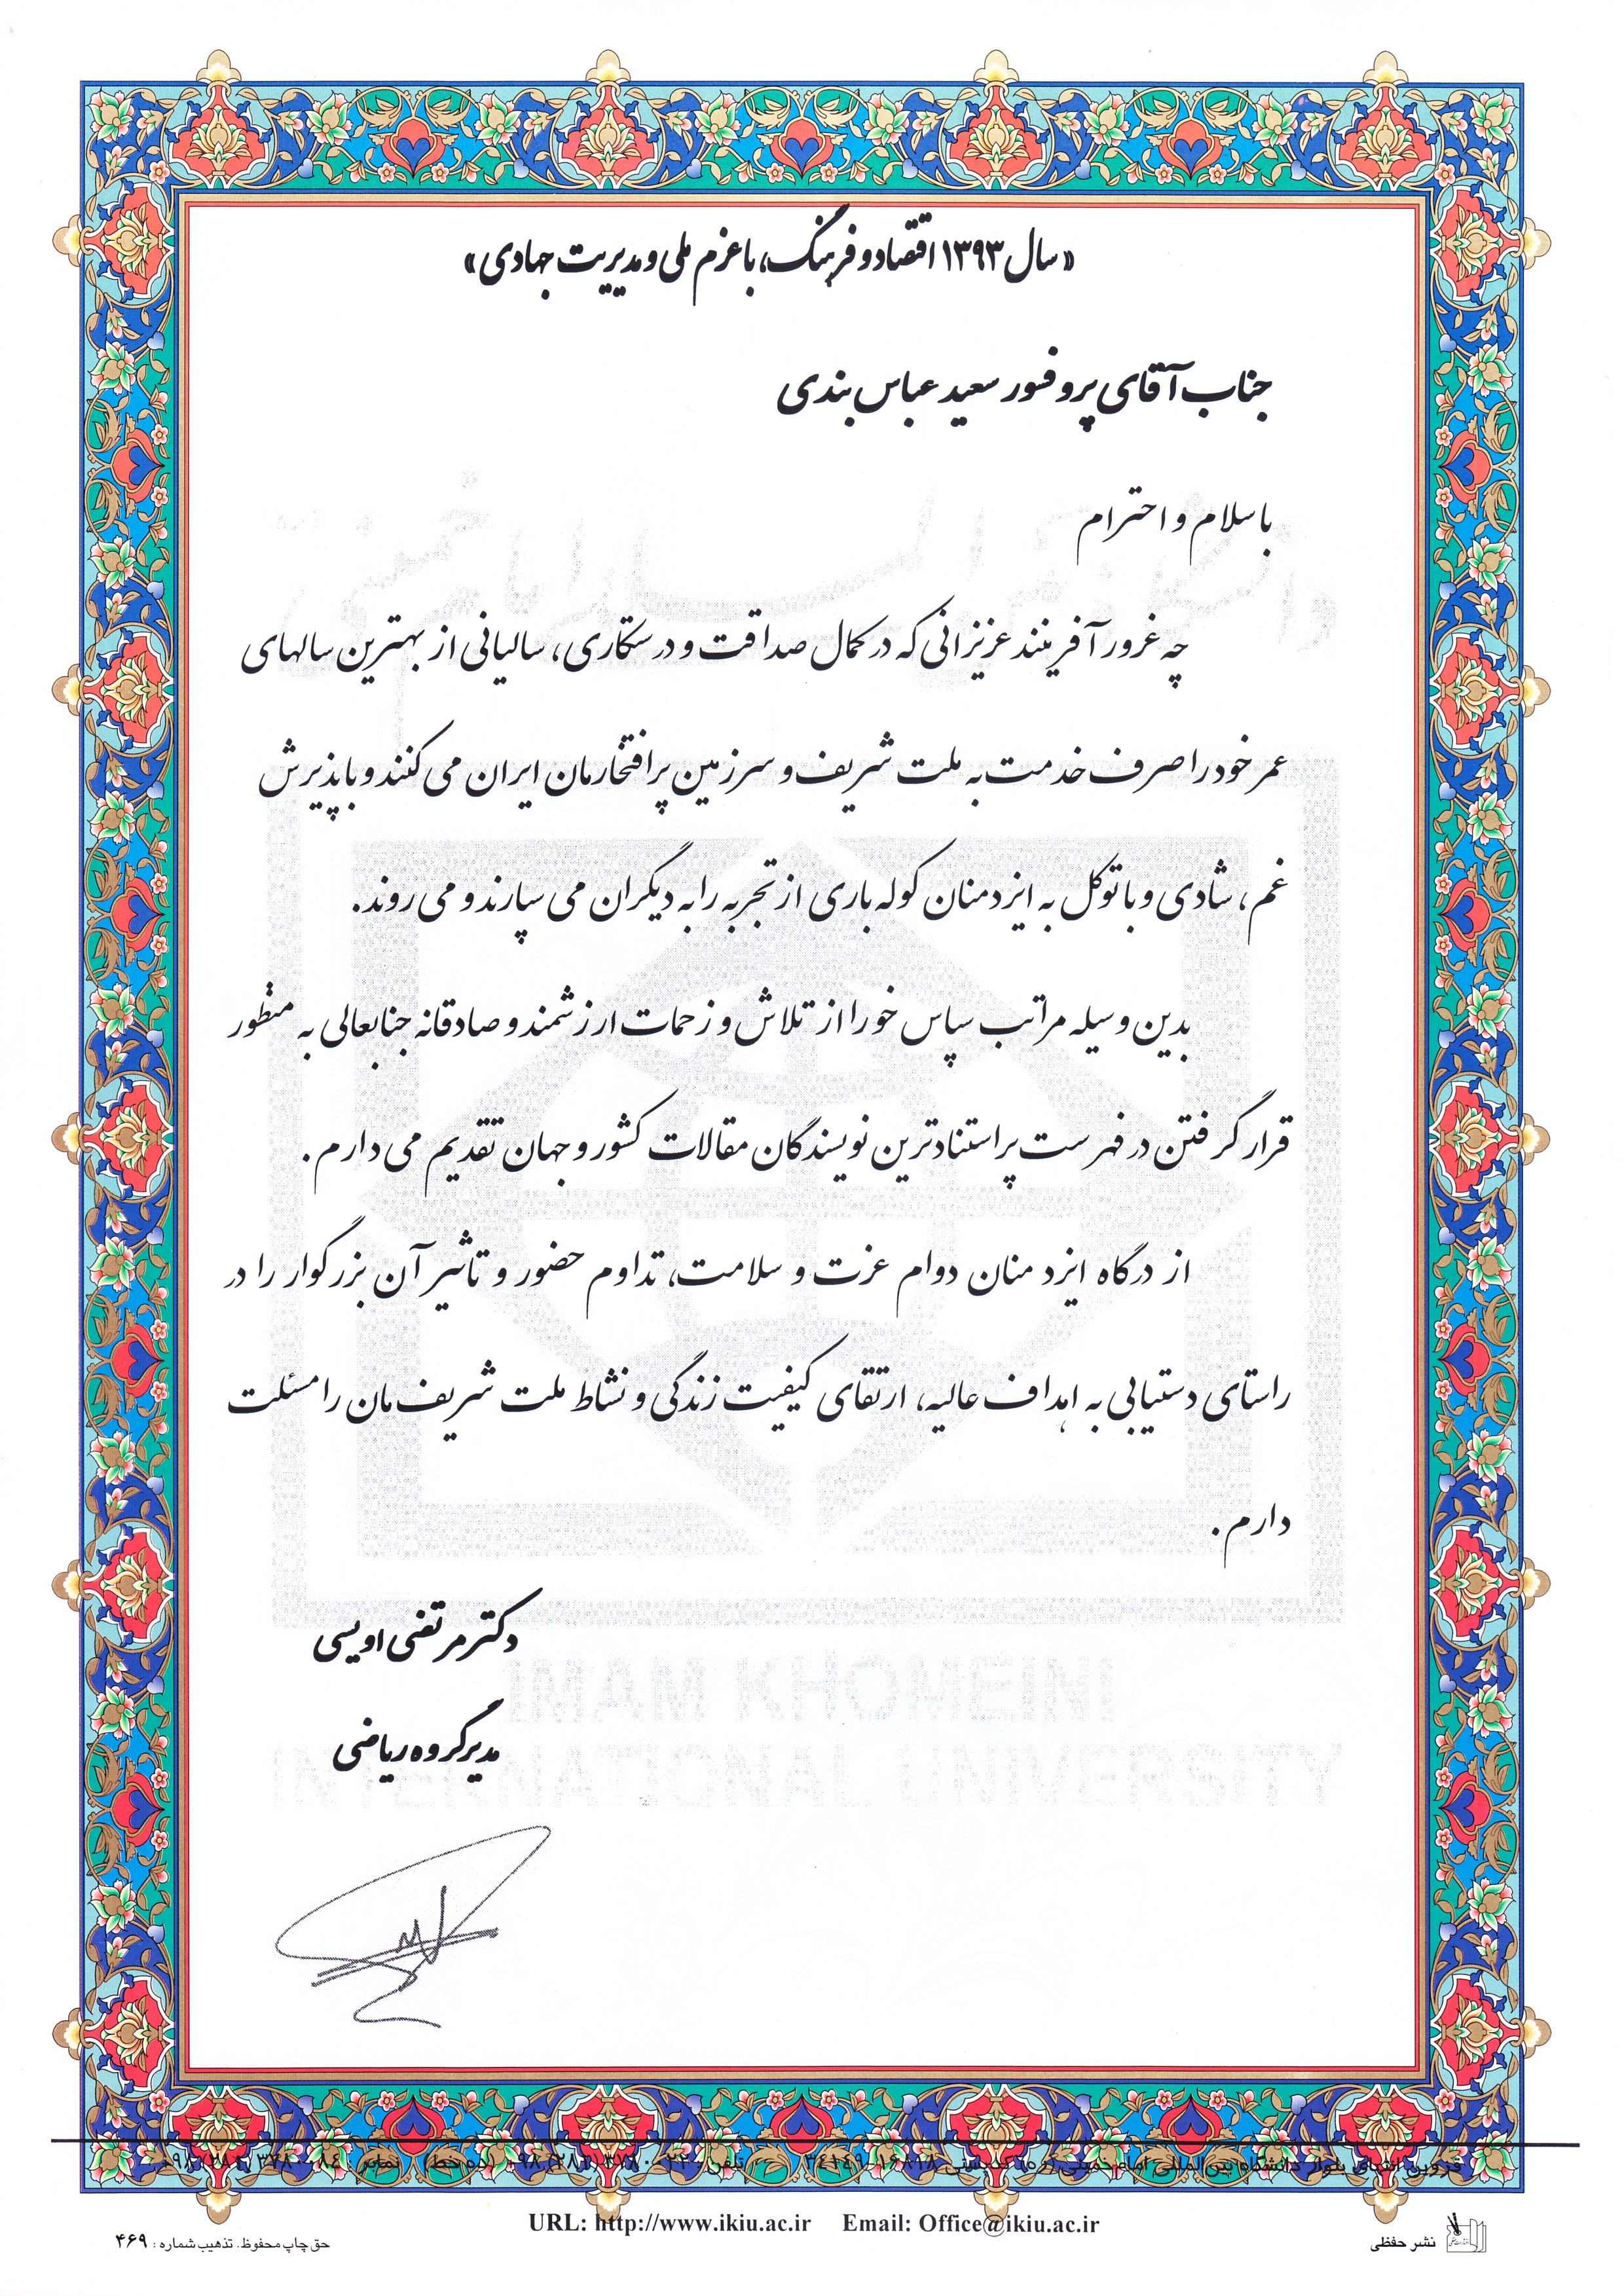 «سال ۱۳۹۳ اقتصاد و فرهنگ، با عزم ملی و مدیریت جهادی»
جناب آقای پروفسور سعید عباس بندی
با سلام و احترام
چه غرور آفرینند عزیزانی که در کمال صداقت و درستکاری، سالیانی از بهترین سالهای
عمر خود را صرف خدمت به ملت شریف و سرزمین پرافتخارمان ایران می کنند و با پذیرش
غم، شادی و با توکل به ایزد منان کوله باری از تجربه را به دیگران می سپارند و می روند.
بدین وسیله مراتب سپاس خود را از تلاش و زحمات ارزشمند و صادقانه جنابعالی به منظور
قرار گرفتن در فهرست پراستنادترین نویسندگان مقالات کشور و جهان تقدیم می دارم.
از درگاه ایزد منان دوام عزت و سلامت، تداوم حضور و تاثیر آن بزرگوار را در
راستای دستیابی به اهداف عالیه، ارتقای کیفیت زندگی و نشاط ملت شریف مان را مسئلت
دارم.
دکتر مرتضی اویسی
مدیر گروه ریاضی
IMAM KHOMEINI
INTERNATIONAL UNIVERSITY
قزوین، انتهای بلوار دانشگاه بین‌المللی امام خمینی (ره) کدپستی ۱۶۸۱۸-۳۴۱۴۹ تلفن: (ده خط) نمابر:
URL: http://www.ikiu.ac.ir Email: Office@ikiu.ac.ir
نشر حفظی
حق چاپ محفوظ. تذهیب شماره : ۴۶۹